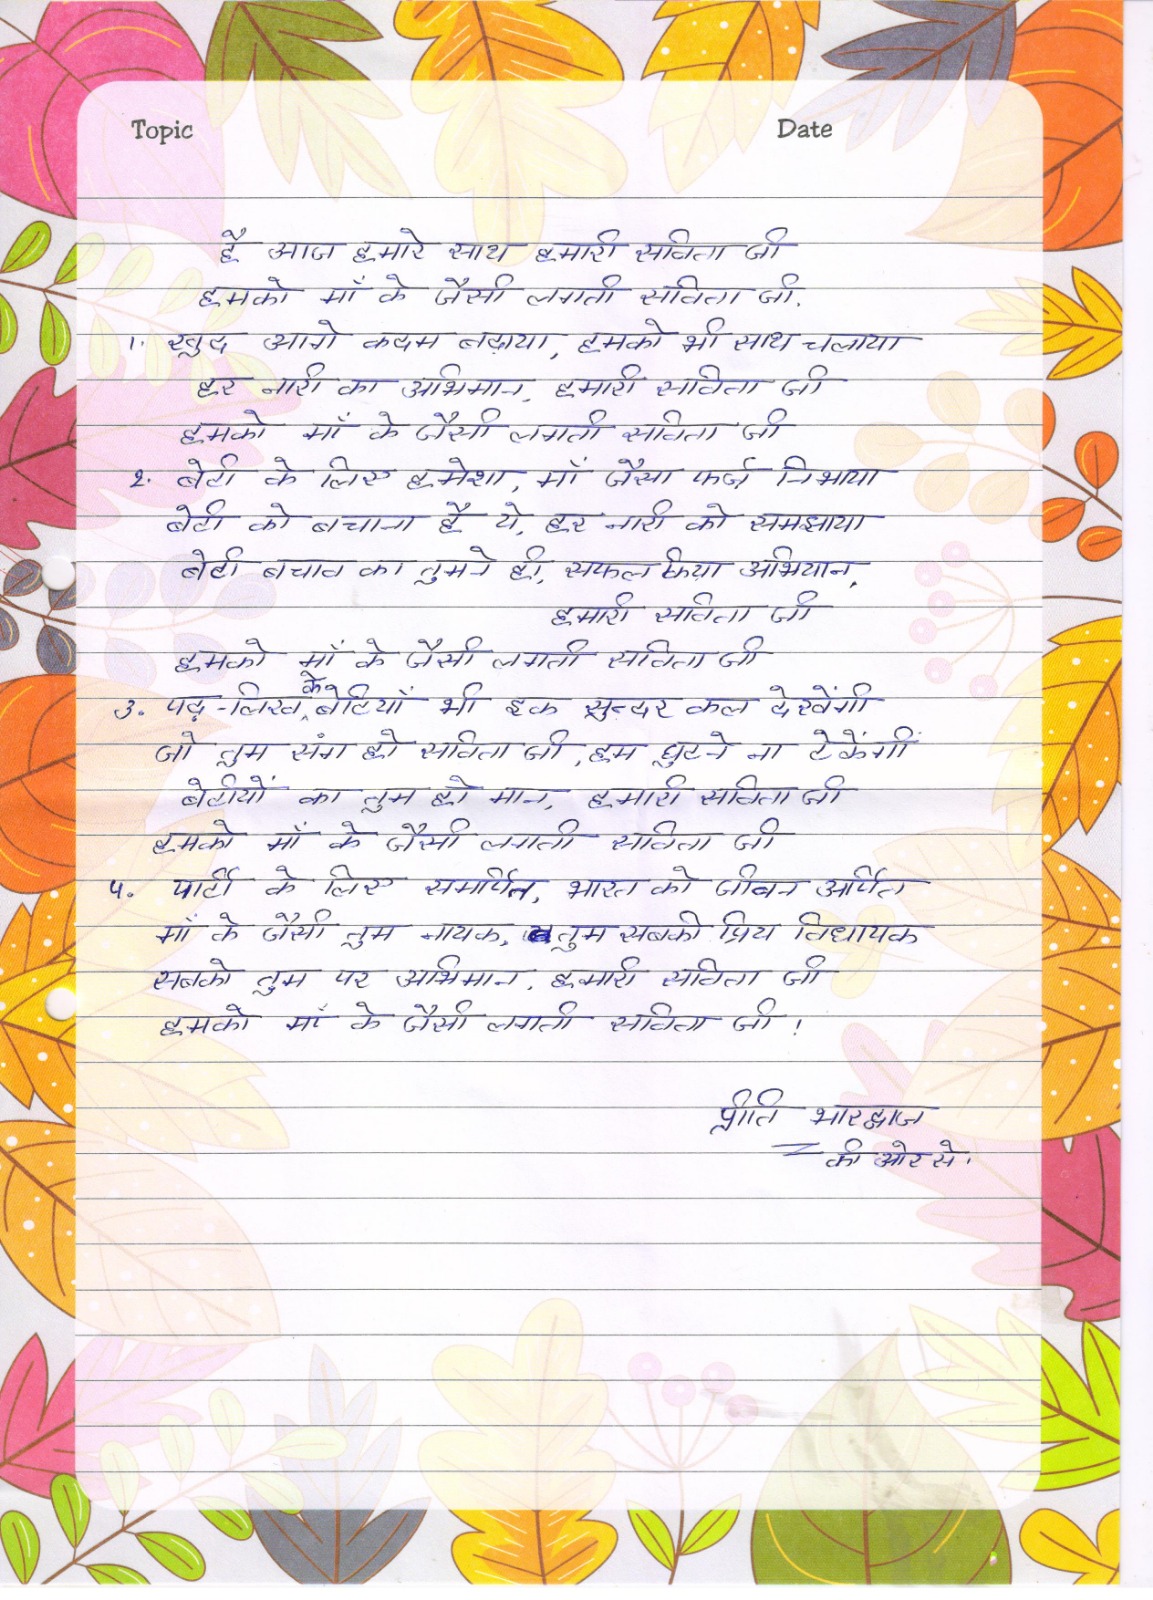 Topic Date
है आज हमारे साथ हमारी सविता जी
हमको माँ के जैसी लगती सविता जी.
1. खुद आगे कदम बढ़ाया, हमको भी साथ चलाया
हर नारी का अभिमान, हमारी सविता जी
हमको माँ के जैसी लगती सविता जी
2. बेटी के लिए हमेशा, माँ जैसा फर्ज निभाया
बेटी को बचाना है ये, हर नारी को समझाया
बेटी बचाव का तुमने ही, सफल किया अभियान,
हमारी सविता जी
हमको माँ के जैसी लगती सविता जी
3. पढ़-लिख के बेटियाँ भी इक सुन्दर कल देखेंगी
जो तुम संग हो सविता जी, हम घुटने ना टेकेंगीं
बेटीयों का तुम हो मान, हमारी सविता जी
हमको माँ के जैसी लगती सविता जी
4. पार्टी के लिए समर्पित, भारत को जीवन अर्पित
माँ के जैसी तुम नायक, तुम सबकी प्रिय विधायक
सबको तुम पर अभिमान, हमारी सविता जी
हमको माँ के जैसी लगती सविता जी!
प्रीति भारद्वाज
की ओर से.